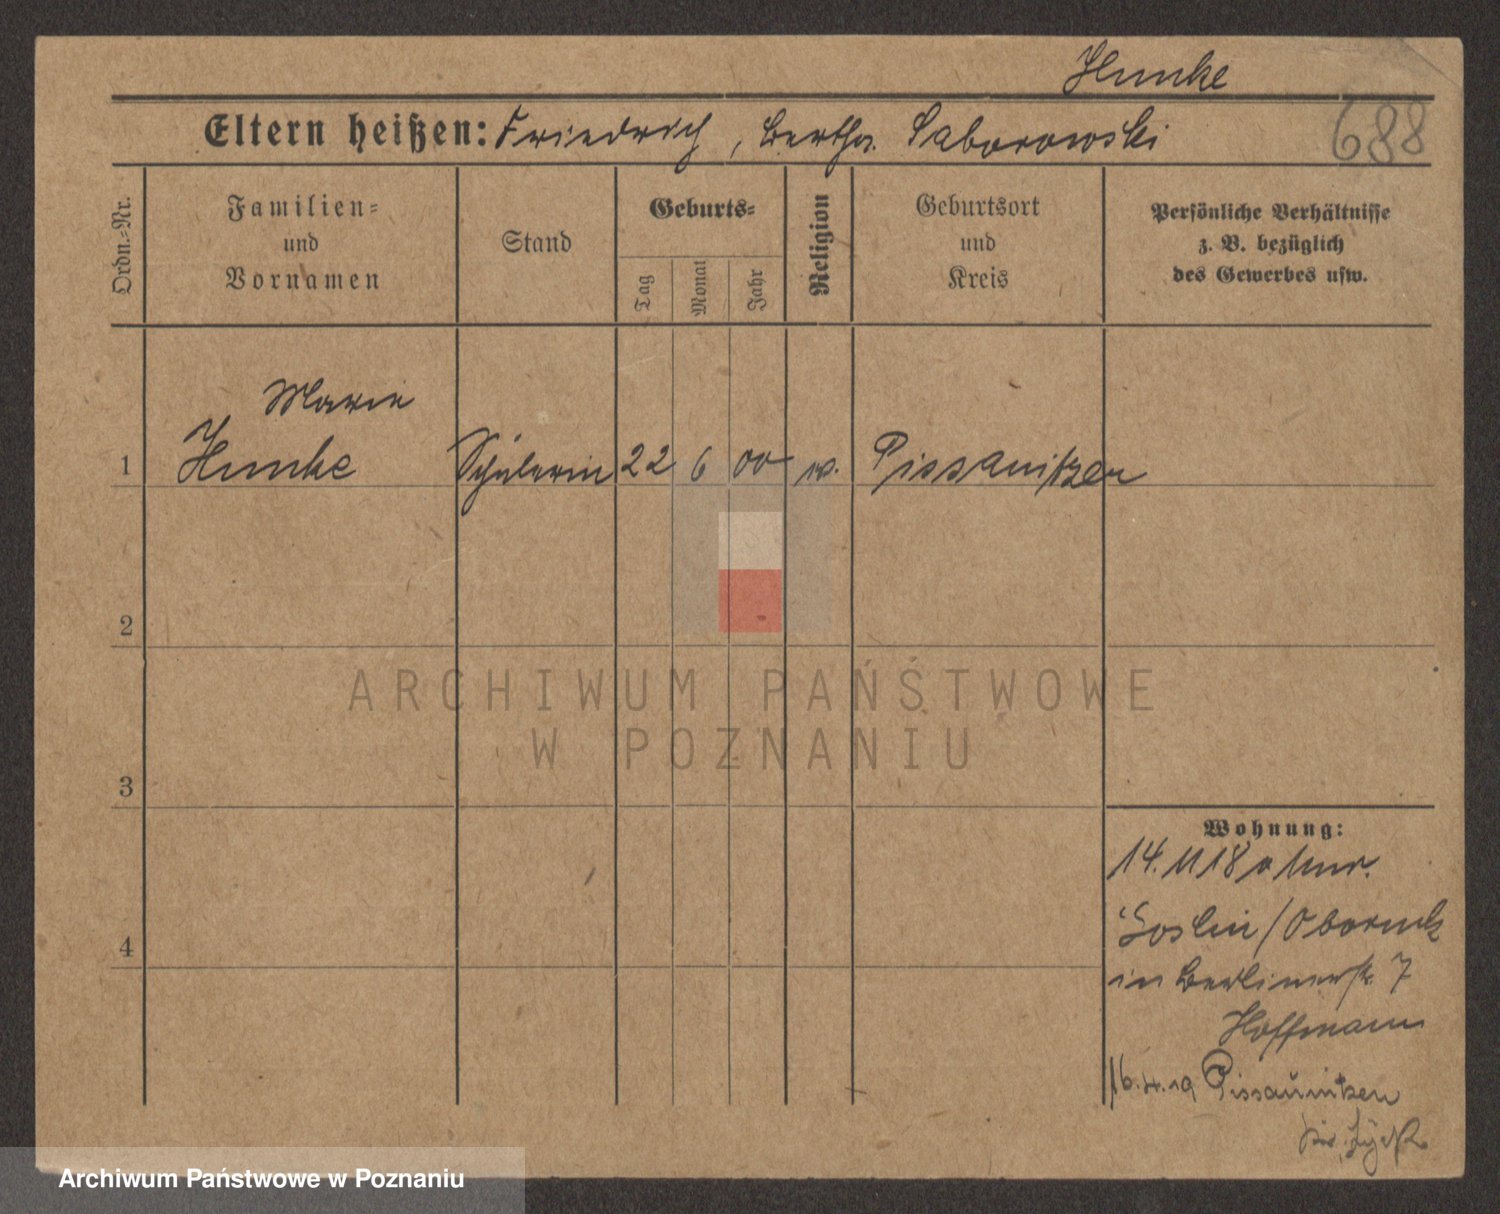 Hunke
Eltern heißen: Friedrich, Bertha Saborowski
688
Ordn.-Nr.
Familien-
und
Vornamen
Stand
Geburts-
Tag
Monat
Jahr
Religion
Geburtsort
und
Kreis
Persönliche Verhältnisse
z. B. bezüglich
des Gewerbes usw.
Marie
1 Hunke Schülerin 22 6 00 Pissanitzen
2
3
4
ARCHIWUM PAŃSTWOWE
W POZNANIU
Wohnung:
14. 11 18
Goslin / Obornik
in Berlinerstr. 7
Hoffmann
16.4.19 Pissanitzen
Kr. Lyck
Archiwum Państwowe w Poznaniu